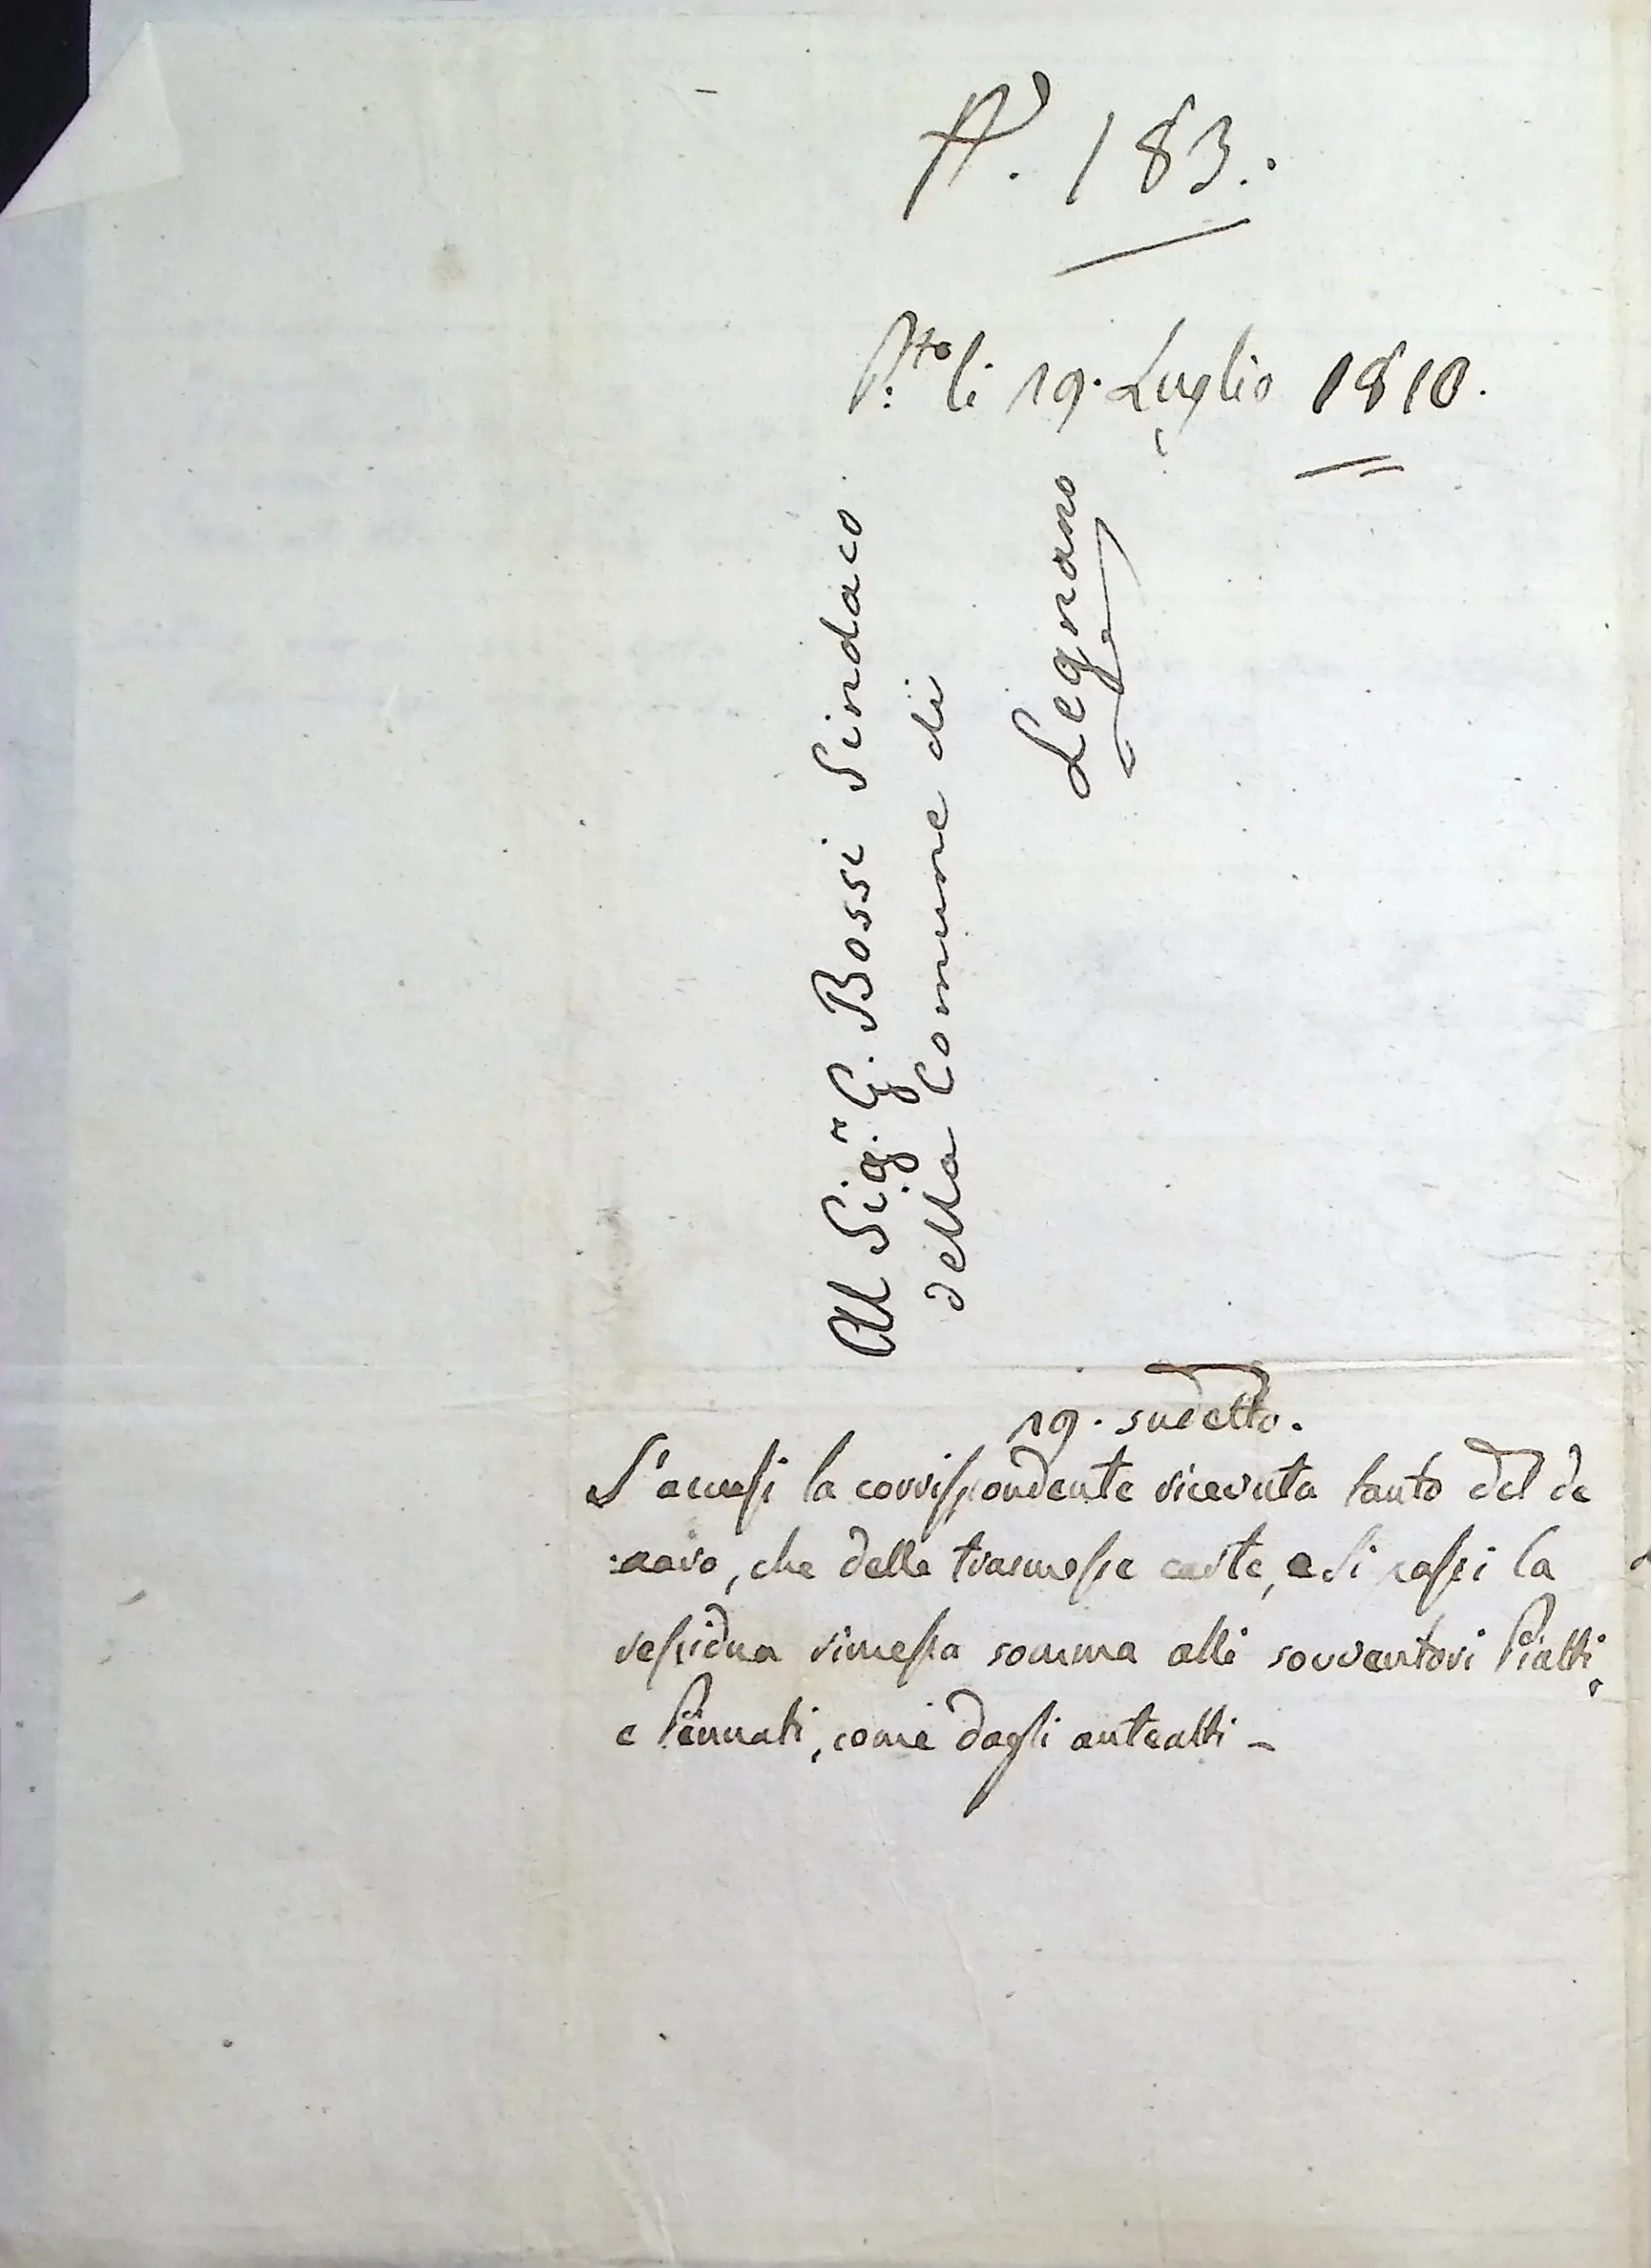 N. 183.
P.to li 19. Luglio 1810.
Al Sig.r G. Bossi Sindaco
della Comune di
Legnano
19. sudetto.
S'accusi la corrispondente ricevuta tanto del de
:naro, che delle trasmesse carte, e si passi la
residua rimessa somma alli sovventori Piatti,
e Pennati, come dagli anteatti -